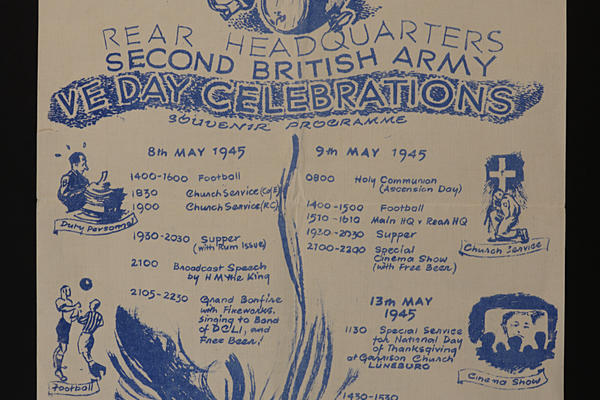 REAR HEADQUARTERS
SECOND BRITISH ARMY
VE DAY CELEBRATIONS
SOUVENIR PROGRAMME
8th MAY 1945
1400-1600 Football
1830 Church Service (C of E)
1900 Church Service (R.C.)
1930-2030 Supper
(with Rum Issue)
2100 Broadcast Speech
by H M the King
2105-2230 Grand Bonfire
with Fireworks.
Singing to Band
of DCLI, and
Free Beer!
Duty Personnel
Football
9th MAY 1945
0800 Holy Communion
(Ascension Day)
1400-1500 Football
1510-1610 Main HQ v Rear HQ
1930-2030 Supper
2100-2200 Special
Cinema Show
(with Free Beer)
13th MAY
1945
1130 Special Service
for National Day
of Thanksgiving
at Garrison Church
LÜNEBURG
1430-1530
Church Service
Cinema Show